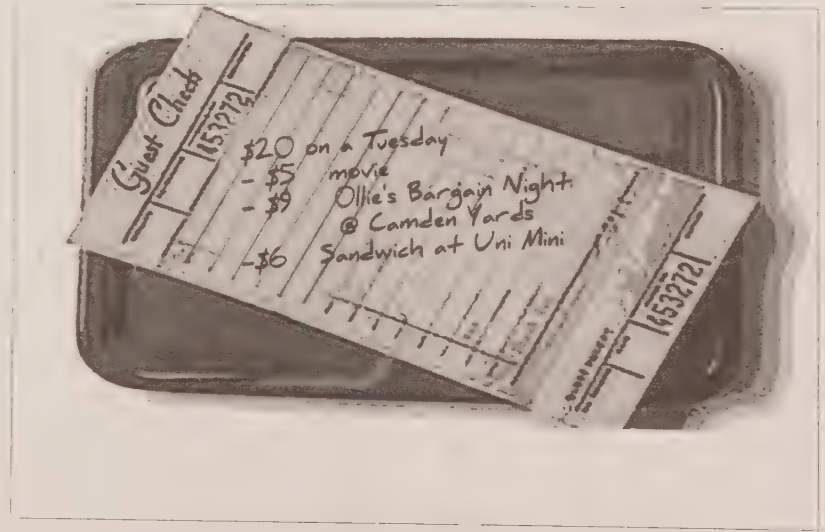 Guest Check
453272
$20 on a Tuesday
- $5 movie
- $9 Ollie's Bargain Night
@ Camden Yards
-$6 Sandwich at Uni Mini
453272